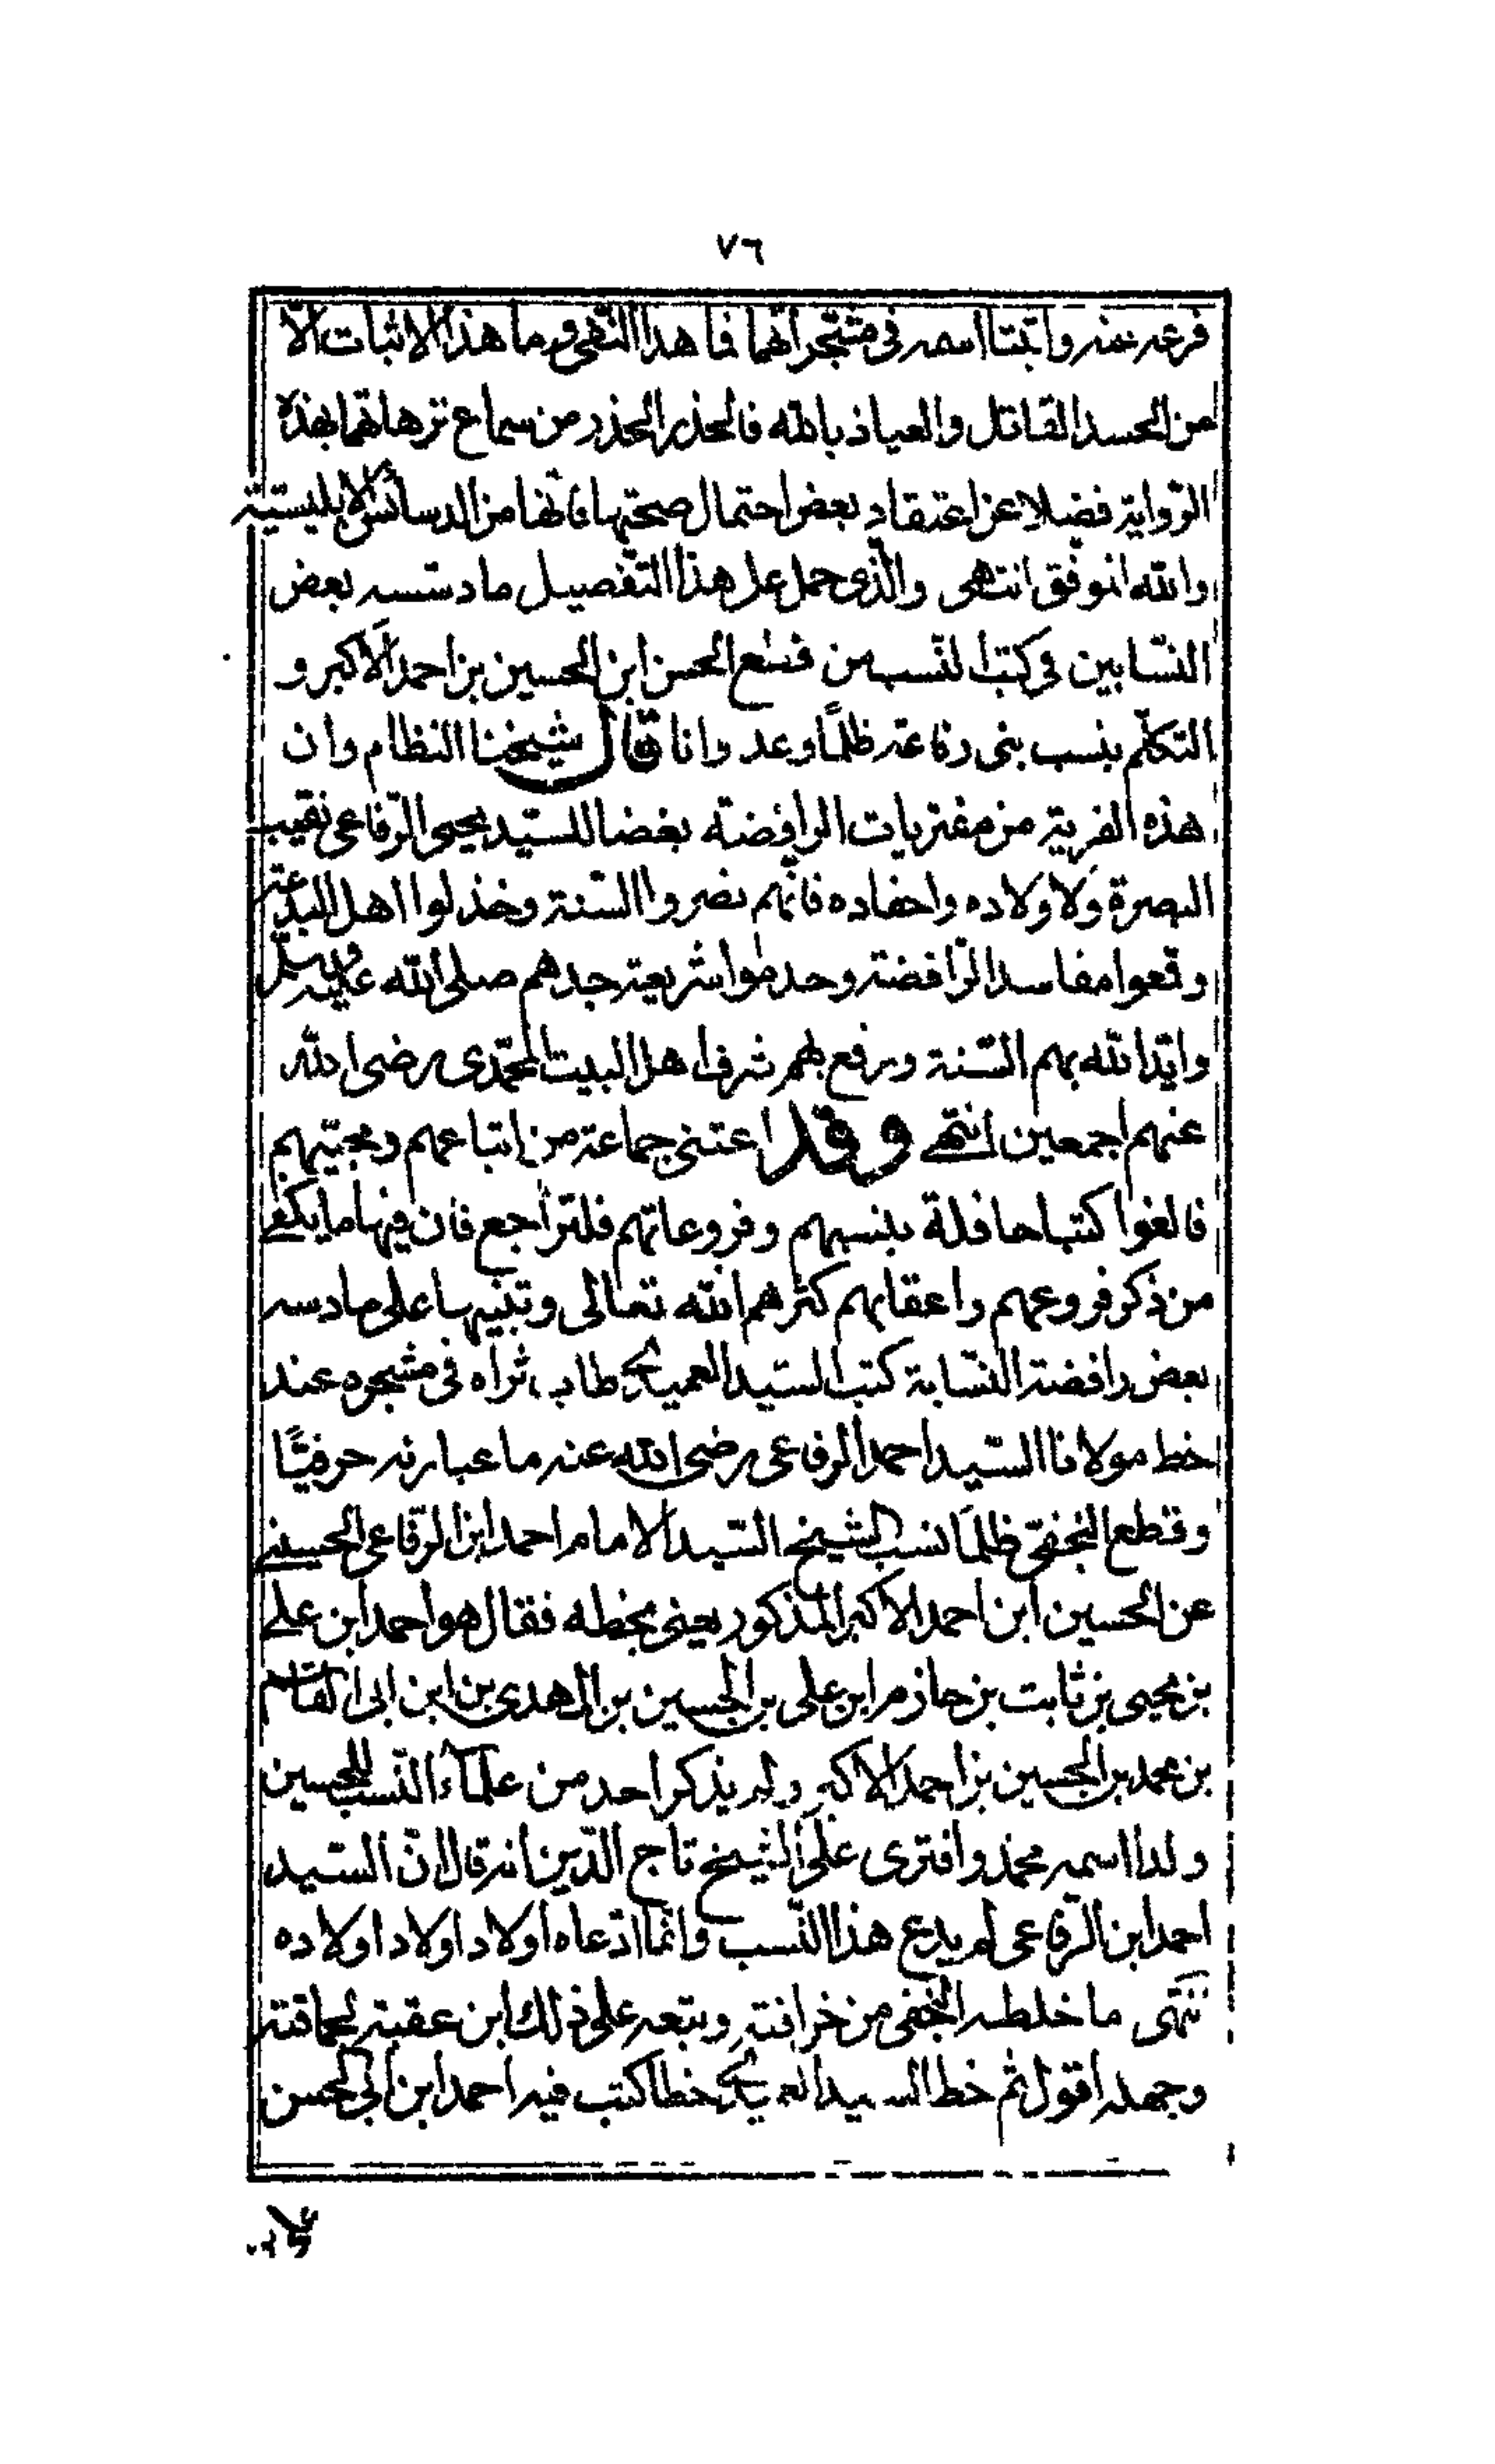 ٧٦
فرعه عنه واثبتا اسمه فى مشجراتهما فما هذا النهى وما هذا الاثبات الا
من الحسد القاتل والعياذ بالله فالحذر الحذر من سماع ترهاتهما بهذه
الرّواية فضلا عن اعتقاد بعض احتمال صحتها فانها من الدسائس الابليسيّة
والله الموفق انتهى والّذى حمل على هذا التفصيل ما دسّسه بعض
النسّابين فى كتب النّسب من قطع الحسن ابن الحسين بن احمد الاكبر و
التكلّم بنسب بنى رفاعة ظلمًا وعدوانا قال شيخنا النظام وان
هذه الفرية من مفتريات الرافضة بغضا للسيّد يحيى الرّفاعى نقيب
البصرة ولاولاده واحفاده فانّهم نصروا السّنة وخذلوا اهل البدعة
وقعوا مفاسد الرّافضة وخدموا شريعة جدهم صلى الله عليه وسلّم
وايّد الله بهم السّنة ورفع بهم شرف اهل البيت المحمّدى رضى الله
عنهم اجمعين انتهى وقد اعتنى جماعة من اتباعهم ومحبيّهم
فالفوا كتبا حافلة بنسبهم وفروعاتهم فلتراجع فان فيها ما يكفى
من ذكر فروعهم واعقابهم كثرهم الله تعالى وتنبيها على ما دسه
بعض رافضة النسّابة كتب السّيد العميدى طاب ثراه فى مشجره عند
خط مولانا السّيد احمد الرفاعى رضى الله عنه ما عبارته حرفيًّا
وقطع النجفى ظلمًا نسب الشيخ السّيد الامام احمد ابن الرّفاعى الحسينى
عن الحسين ابن احمد الاكبر المذكور يعنى بخطه فقال هو احمد ابن على
بن يحيى بن ثابت بن حازم ابن على بن الحسين بن المهدى بن ابن ابى القاسم
بن محمد بن الحسين بن احمد الاكبر ولم يذكر احد من علماء النّسب للحسين
ولدا اسمه محمد وافترى على الشيخ تاج الدّين انه قال انّ السّيد
احمد ابن الرّفاعى لم يدع هذا النّسب وانّما ادّعاه اولاد اولاد اولاده
انتهى ما خلطه النجفى من خرافته وتبعه على ذلك ابن عقبة لحماقته
وجهله اقول ثم خط السيد العميدى خطا كتب فيه احمد ابن ابى الحسن